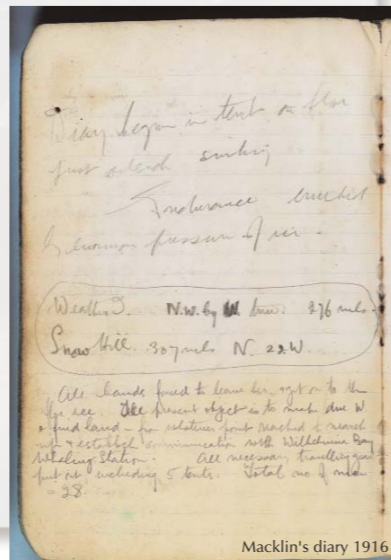 Diary began in tent on floe
just outside sinking
Endurance crushed
pressure of ice -
Weather N.W. by W true. 376 mls.
Snow Hill. 307 mls N. 22. W
All hands forced to leave her & get on to the
floe ice. The present object is to march due W
& find land -
& establish communication with Wilhelmina Bay
Whaling Station. All necessary travelling gear
put out including 5 tents. Total no of men
= 28.
Macklin's diary 1916